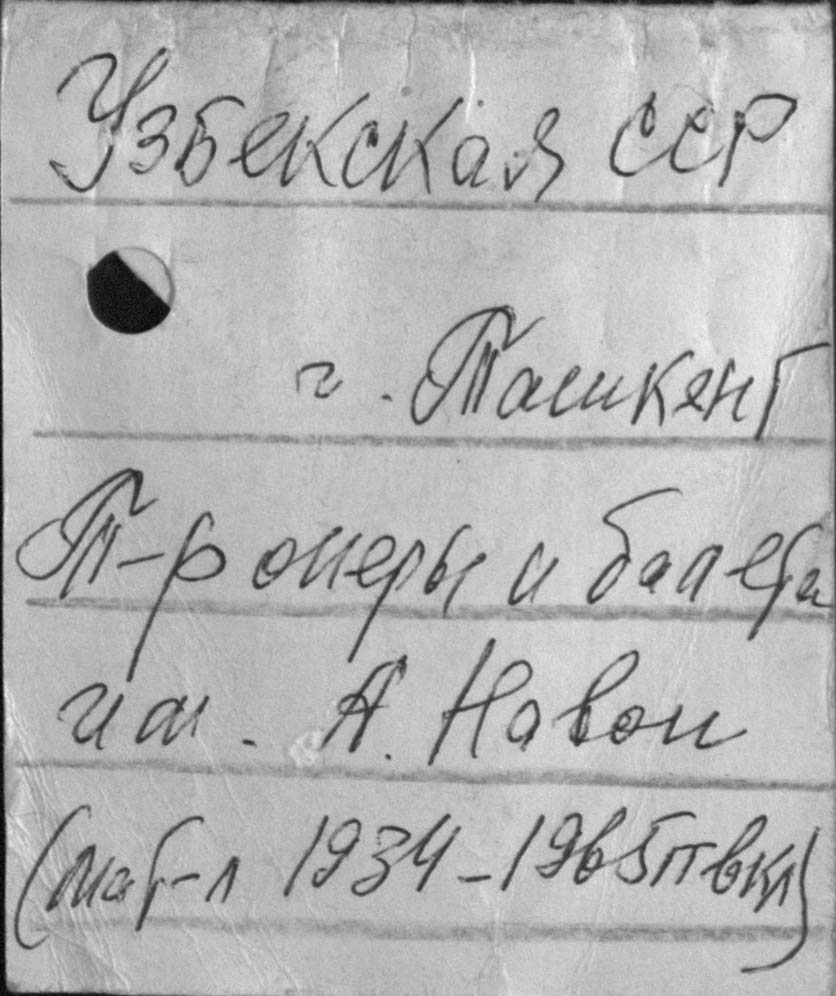 Узбекская ССР
г. Ташкент
Т-р оперы и балета
им. А. Навои
(мат-л 1934-1965